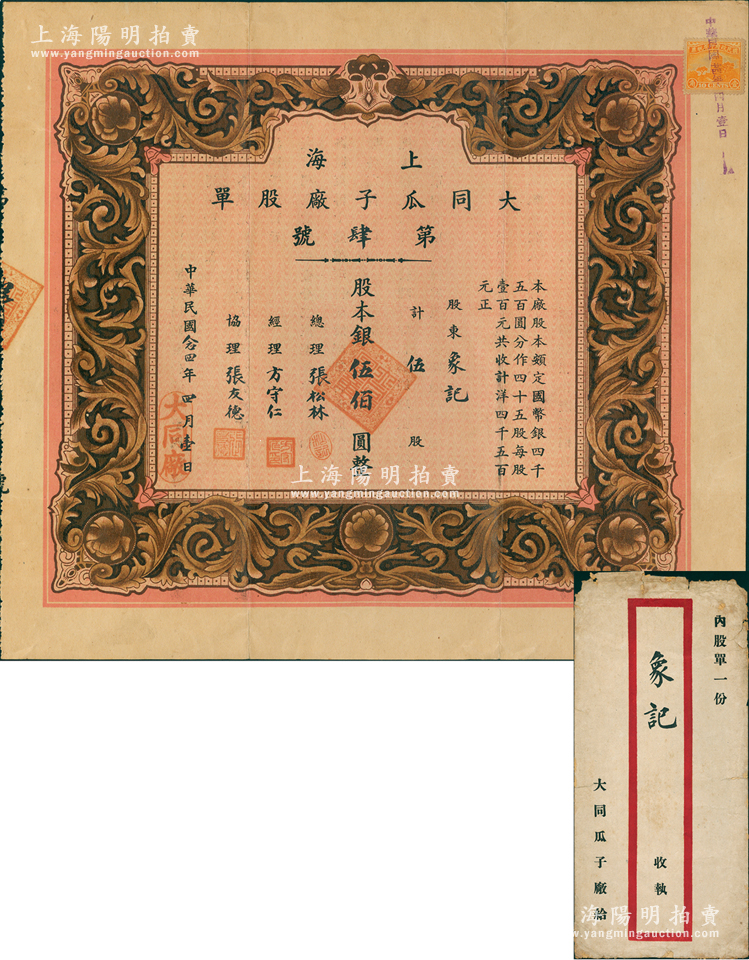 上海陽明拍賣
www.yangmingauction.com
上海
大同瓜子廠股單
第肆號
本廠股本額定國幣銀四千
五百圓分作四十五股每股
壹百元共收計洋四千五百
元正
股東 象記
計 伍 股
股本銀 伍佰 圓整
總理 張松林
經理 方守仁
協理 張友德
中華民國念四年四月壹日
大同廠
上海陽明拍賣
www.yangmingauction.com
內股單一份
象記 收執
大同瓜子廠給
上海陽明拍賣
www.yangmingauction.com